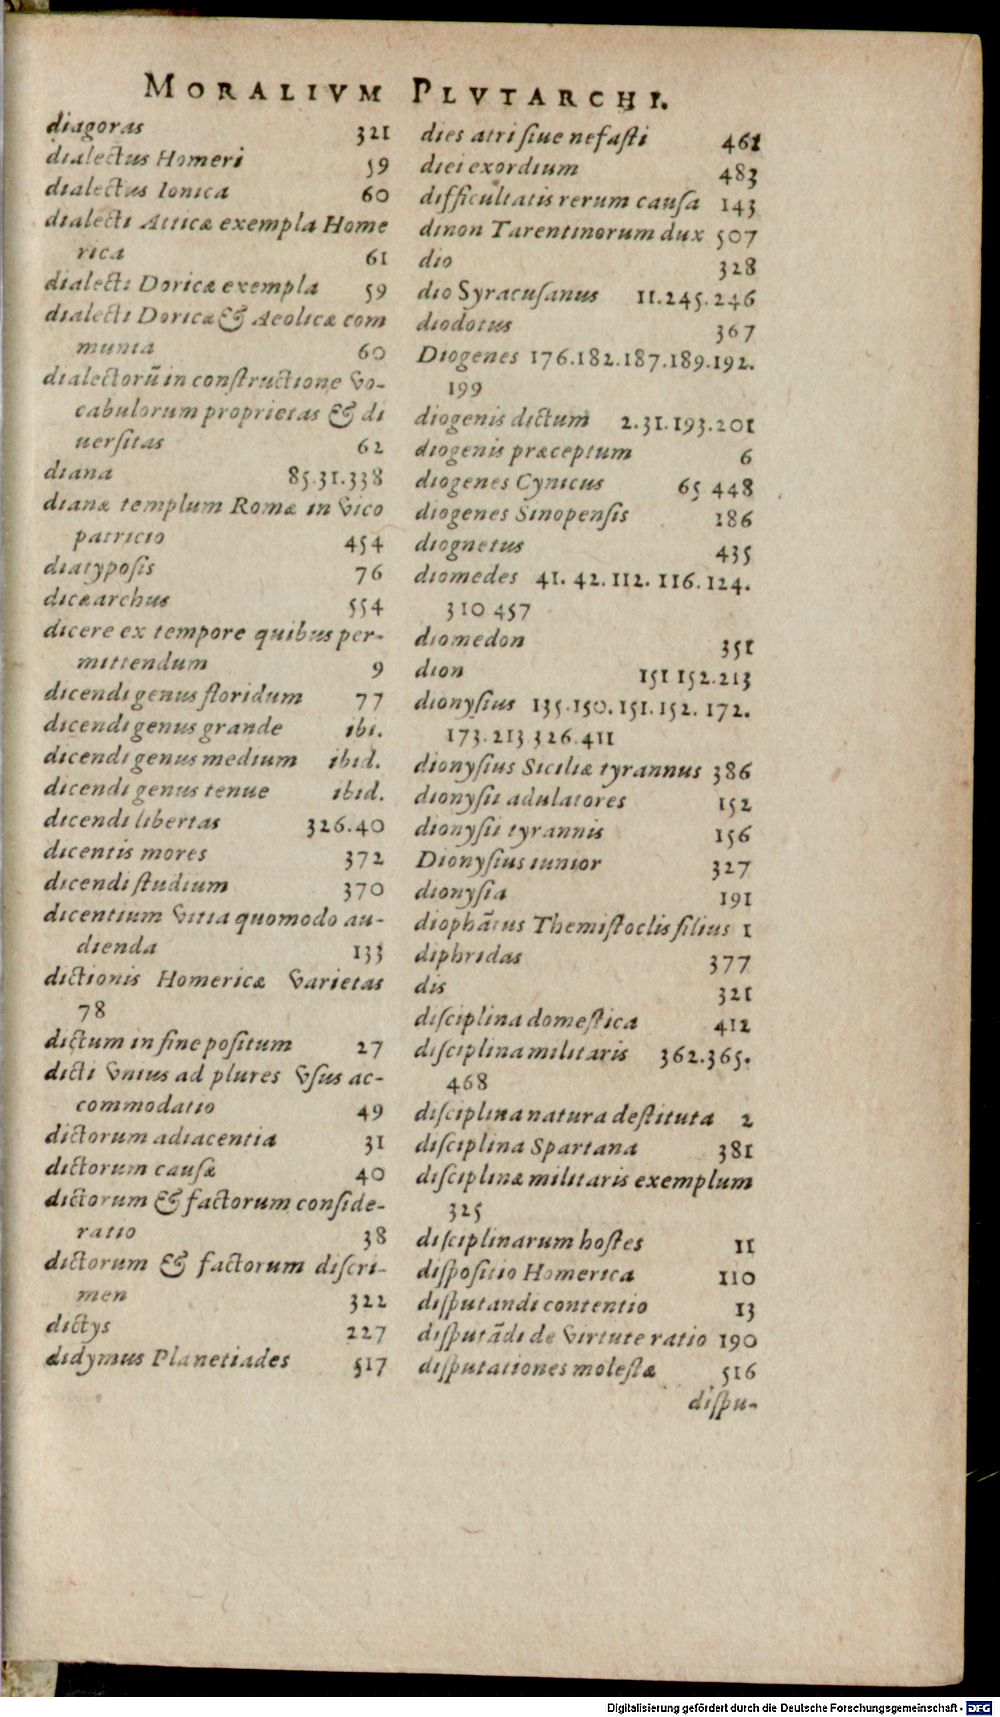 MORALIVM PLVTARCHI.
diagoras 321
dialectus Homeri 59
dialectus Ionica 60
dialecti Atticæ exempla Home
rica 61
dialecti Doricæ exempla 59
dialecti Doricæ & Aeolicæ com
munia 60
dialectorũ in constructione vo-
cabulorum proprietas & di
uersitas 62
diana 85.31.338
dianæ templum Romæ in vico
patricio 454
diatyposis 76
dicæarchus 554
dicere ex tempore quibus per-
mittendum 9
dicendi genus floridum 77
dicendi genus grande ibi.
dicendi genus medium ibid.
dicendi genus tenue ibid.
dicendi libertas 326.40
dicentis mores 372
dicendi studium 370
dicentium vitia quomodo au-
dienda 133
dictionis Homericæ varietas
78
dictum in fine positum 27
dicti vnius ad plures vsus ac-
commodatio 49
dictorum adiacentia 31
dictorum causæ 40
dictorum & factorum conside-
ratio 38
dictorum & factorum discri-
men 322
dictys 227
didymus Planetiades 517
dies atri siue nefasti 461
diei exordium 483
difficultatis rerum causa 143
dinon Tarentinorum dux 507
dio 328
dio Syracusanus 11.245.246
diodotus 367
Diogenes 176.182.187.189.192.
199
diogenis dictum 2.31.193.201
diogenis præceptum 6
diogenes Cynicus 65 448
diogenes Sinopensis 186
diognetus 435
diomedes 41. 42. 112. 116. 124.
310 457
diomedon 351
dion 151 152.213
dionysius 135.150.151.152.172.
173.213 326.411
dionysius Siciliæ tyrannus 386
dionysii adulatores 152
dionysii tyrannis 156
Dionysius iunior 327
dionysia 191
diophãtus Themistoclis filius 1
diphridas 377
dis 321
disciplina domestica 412
disciplina militaris 362.365.
468
disciplina natura destituta 2
disciplina Spartana 381
disciplinæ militaris exemplum
325
disciplinarum hostes 11
dispositio Homerica 110
disputandi contentio 13
disputãdi de virtute ratio 190
disputationes molestæ 516
dispu-
Digitalisierung gefördert durch die Deutsche Forschungsgemeinschaft - DFG